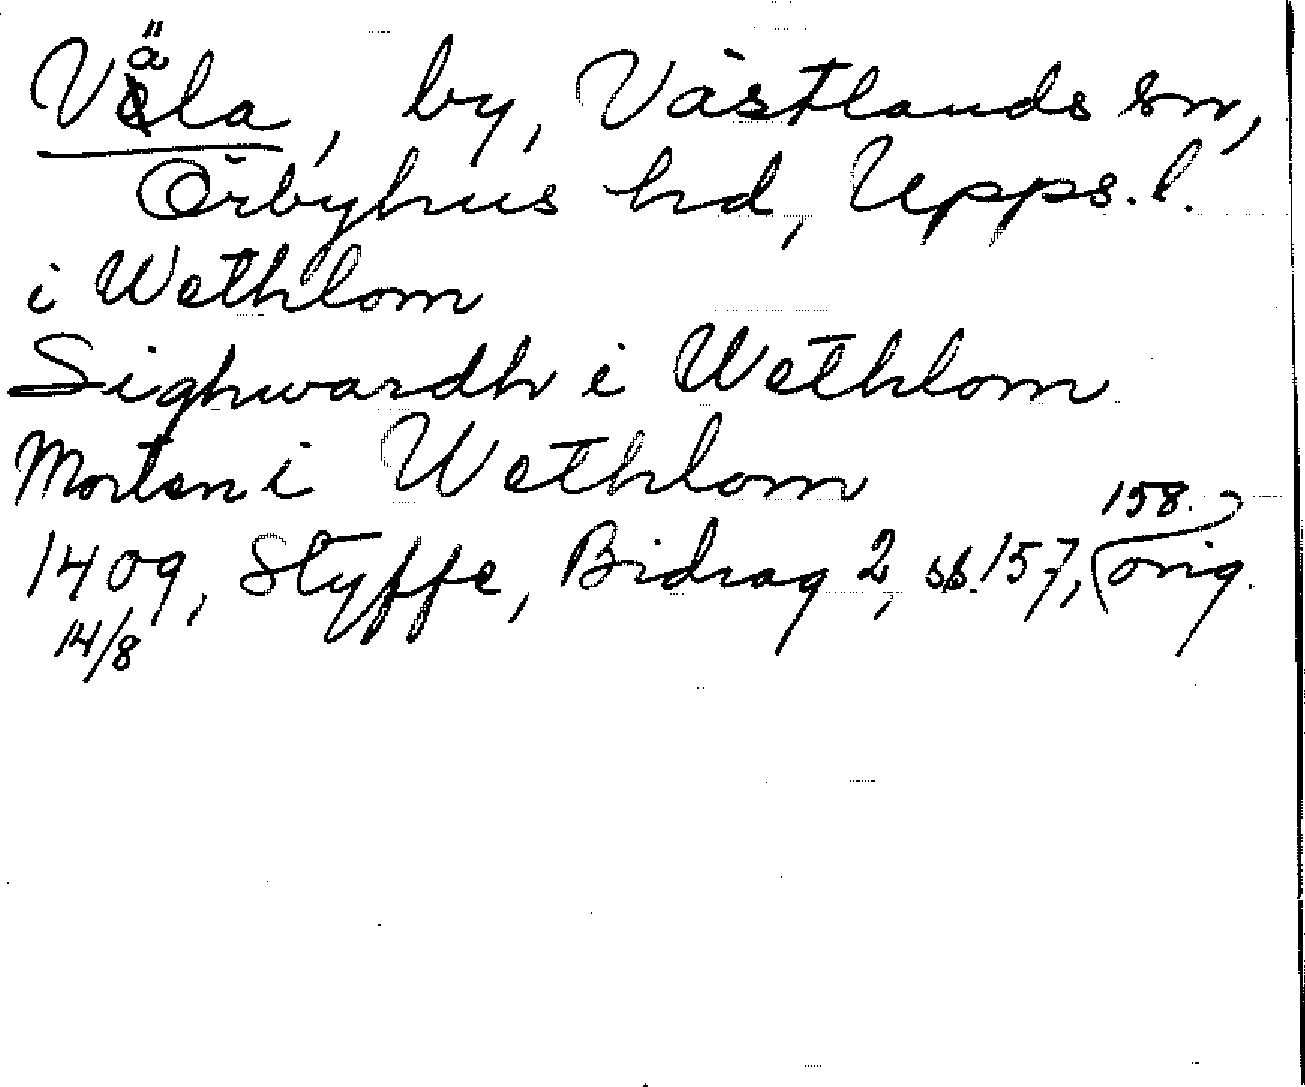 Väla, by, Västlands sn,
Örbyhus hd, Upps. l.
i Wethlom
Sighwardh i Wethlom
Morten i Wethlom
1409, Styffe, Bidrag 2, s. 157, 158. orig.
14/8